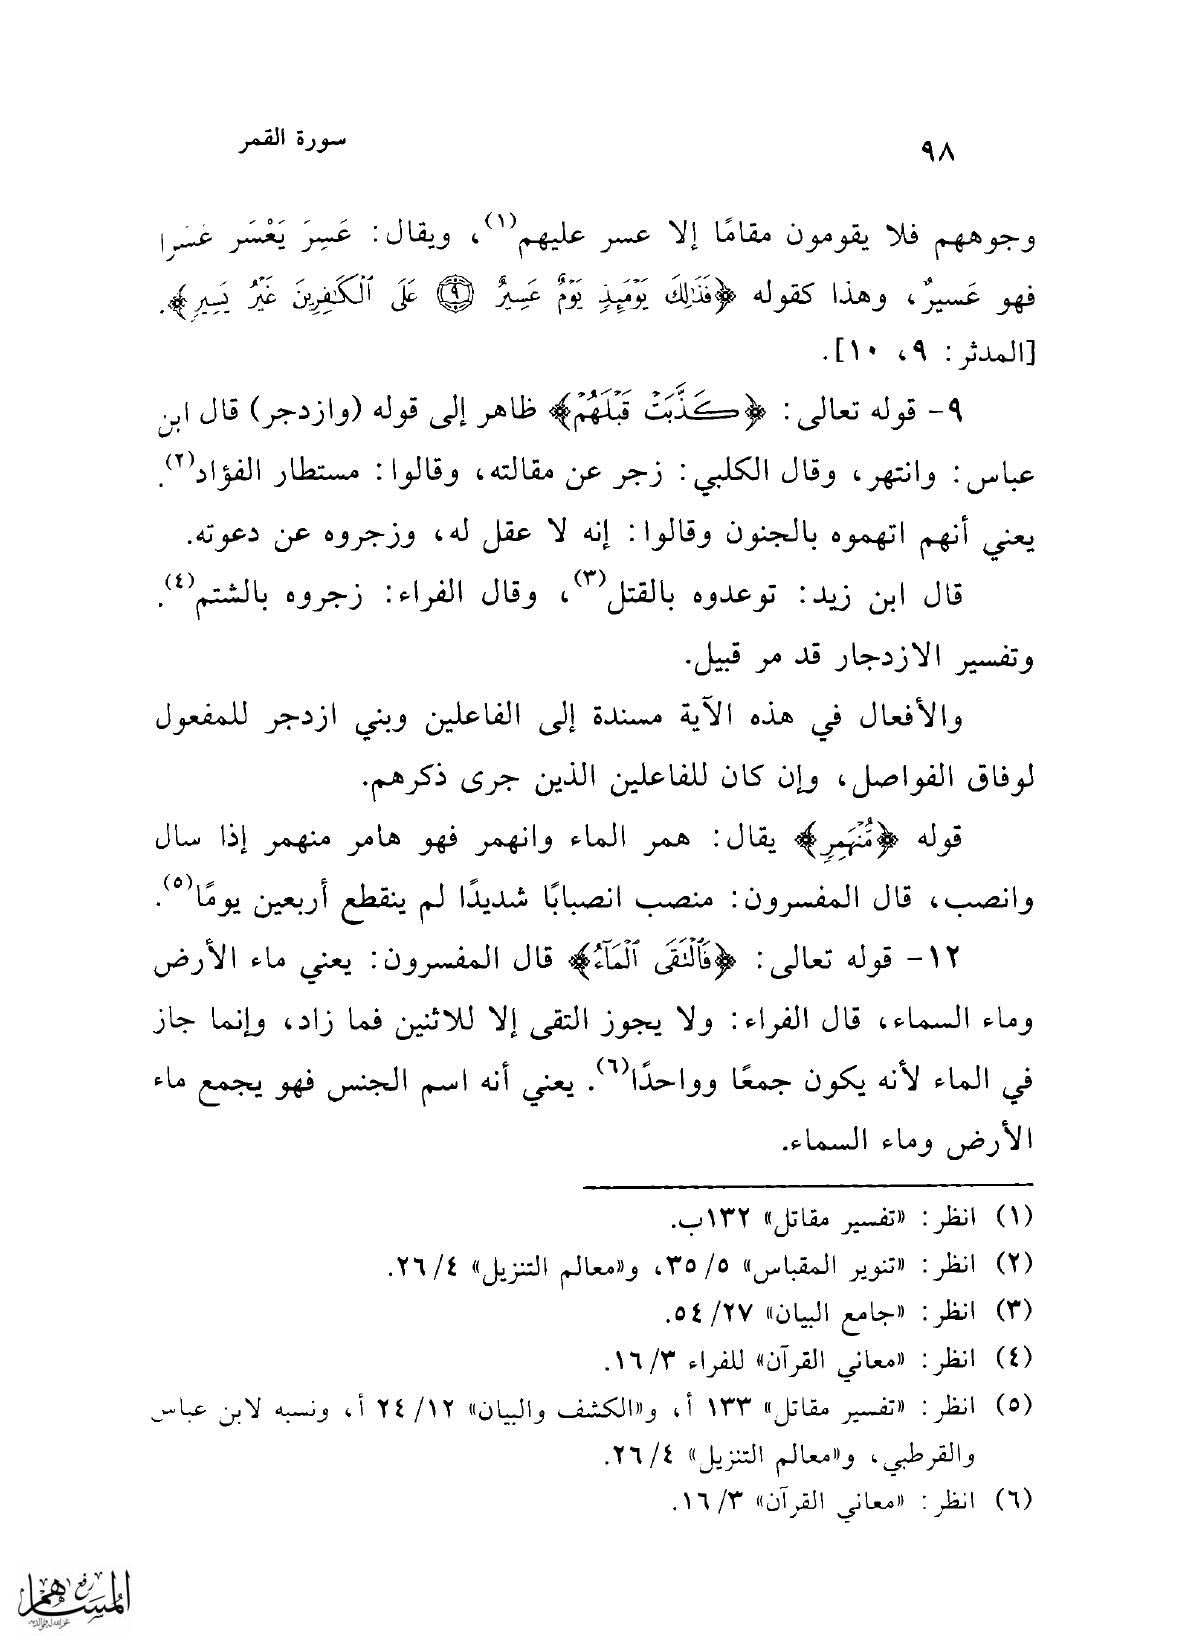 ٩٨
سورة القمر
وجوههم فلا يقومون مقامًا إلا عسر عليهم(١)، ويقال: عَسِرَ يَعْسَر عَسَرا
فهو عَسيرٌ، وهذا كقوله ﴿فَذَٰلِكَ يَوْمَئِذٍ يَوْمٌ عَسِيرٌ ٩ عَلَى ٱلْكَٰفِرِينَ غَيْرُ يَسِيرٍ﴾.
[المدثر: ٩، ١٠].
٩- قوله تعالى: ﴿كَذَّبَتْ قَبْلَهُمْ﴾ ظاهر إلى قوله (وازدجر) قال ابن
عباس: وانتهر، وقال الكلبي: زجر عن مقالته، وقالوا: مستطار الفؤاد(٢).
يعني أنهم اتهموه بالجنون وقالوا: إنه لا عقل له، وزجروه عن دعوته.
قال ابن زيد: توعدوه بالقتل(٣)، وقال الفراء: زجروه بالشتم(٤).
وتفسير الازدجار قد مر قبيل.
والأفعال في هذه الآية مسندة إلى الفاعلين وبني ازدجر للمفعول
لوفاق الفواصل، وإن كان للفاعلين الذين جرى ذكرهم.
قوله ﴿مُّنْهَمِرٍ﴾ يقال: همر الماء وانهمر فهو هامر منهمر إذا سال
وانصب، قال المفسرون: منصب انصبابًا شديدًا لم ينقطع أربعين يومًا(٥).
١٢- قوله تعالى: ﴿فَٱلْتَقَى ٱلْمَآءُ﴾ قال المفسرون: يعني ماء الأرض
وماء السماء، قال الفراء: ولا يجوز التقى إلا للاثنين فما زاد، وإنما جاز
في الماء لأنه يكون جمعًا وواحدًا(٦). يعني أنه اسم الجنس فهو يجمع ماء
الأرض وماء السماء.
(١) انظر: «تفسير مقاتل» ١٣٢ب.
(٢) انظر: «تنوير المقباس» ٥/ ٣٥، و«معالم التنزيل» ٤/ ٢٦.
(٣) انظر: «جامع البيان» ٢٧/ ٥٤.
(٤) انظر: «معاني القرآن» للفراء ٣/ ١٦.
(٥) انظر: «تفسير مقاتل» ١٣٣ أ، و«الكشف والبيان» ١٢/ ٢٤ أ، ونسبه لابن عباس
والقرطبي، و«معالم التنزيل» ٤/ ٢٦.
(٦) انظر: «معاني القرآن» ٣/ ١٦.